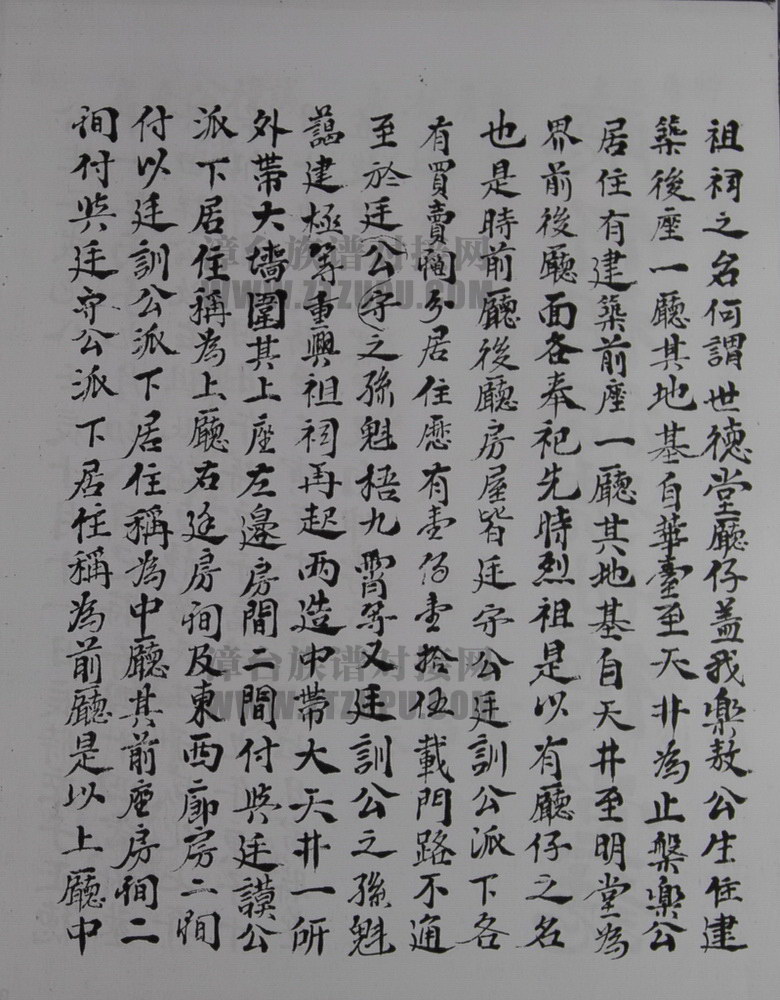 祖祠之名何謂世德堂廳仔盖我樂敖公生住建
築後座一廳其地基自華臺至天井為止槃樂公
居住有建築前座一廳其地基自天井至明堂為
界前後廳面各奉祀先時烈祖是以有廳仔之名
也是時前廳後廳房屋皆廷守公廷訓公派下各
有買賣相分居住歷有壹佰壹拾伍載門路不通
至於廷公守之孫魁梧九霄等又廷訓公之孫魁
藹建極等重興祖祠再起两造中帶大天井一所
外帶大墻圍其上座左邊房間二間付与廷謨公
派下居住稱為上廳右廷房間及東西廊房二間
付以廷訓公派下居住稱為中廳其前座房間二
間付与廷守公派下居住稱為前廳是以上廳中
漳台族谱对接网
WWW.ZTZUPU.COM
漳台族谱对接网
WWW.ZTZUPU.COM